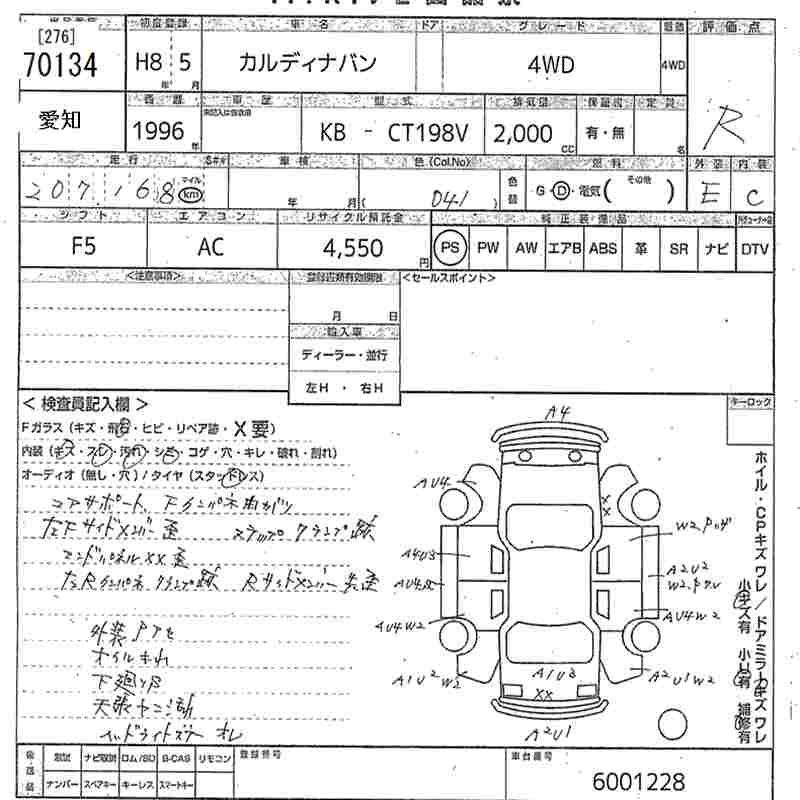 初度登録 車名 ドア グレード 評価点
[276]
70134 H8 5 カルディナバン 4WD 4WD R
年 月
愛知 車歴 型式 排気量 保証書 定員
1996 年 KB - CT198V 2,000 CC 有・無 名
走行 車検 色(Col.No) 燃料 外装 内装
207,168 マイル km 年 月( 041 ) 色替 G・D・電気( その他 ) E C
シフト エアコン リサイクル預託金 純正装備品
F5 AC 4,550 円 PS PW AW エアB ABS 革 SR ナビ DTV
<注意事項> 登録書類有効期限 <セールスポイント>
月 日
輸入車
ディーラー・並行
左H ・ 右H
<検査員記入欄> キーロック
Fガラス(キズ・飛石・ヒビ・リペア跡・X要)
内装(キズ・スレ・汚れ・シミ・コゲ・穴・キレ・破れ・割れ)
オーディオ(無し・穴)/タイヤ(スタッドレス)
コアサポート、
左Fサイドメンバー歪 ステップクランプ跡
エンドパネルXX歪
クランプ跡 Rサイドメンバー
外装
オイルモレ
下廻り
天張
A4
AU4
X
X
A4U3
AU4W2
A2U2
AU4W2
A1U2W2
A1U3
XX
A2U1W2
A2U1
ホイル・CPキズワレ/ドアミラーキズワレ
小キズ有 小U有 補修有
後送品 記録 ナビ取説 ロム/SD B-CAS リモコン 登録番号 車台番号
ナンバー スペアキー キーレス スマートキー 6001228